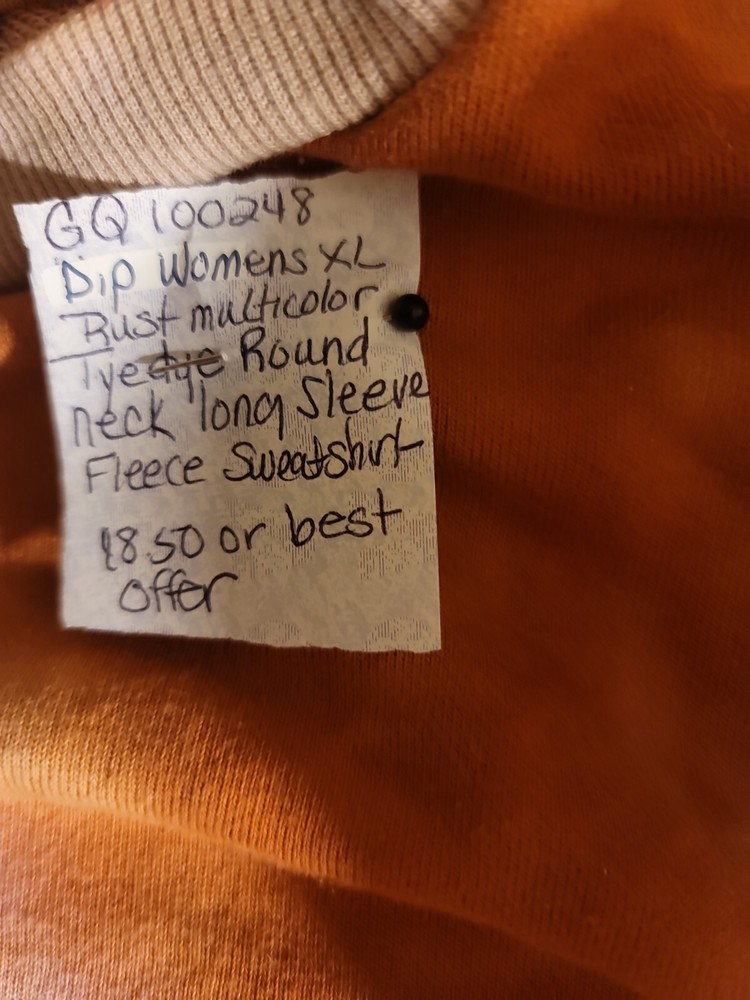 GQ100248
Dip Womens XL
Rust multicolor
Tyedye Round
neck long Sleeve
Fleece Sweatshirt
18.50 or best
offer